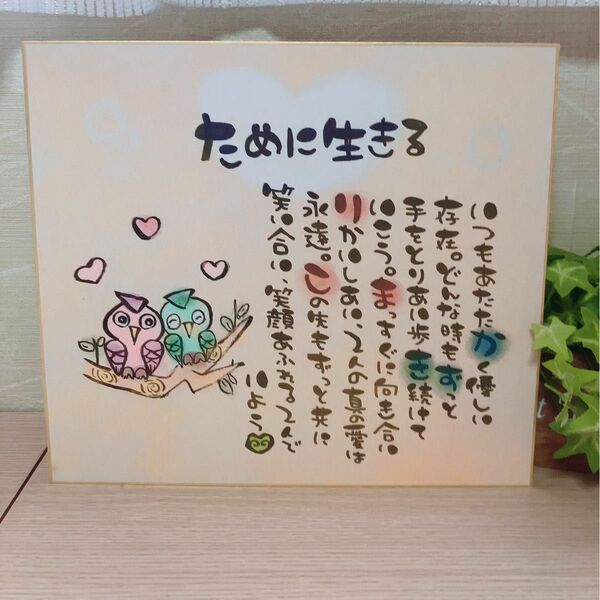 ために生きる
いつもあたたかく優しい
存在。どんな時もずっと
手をとりあい歩き続けて
いこう。まっすぐに向き合い
りかいしあい、2人の真の愛は
永遠。この先もずっと共に
笑い合い、笑顔あふれる2人で
いよう。